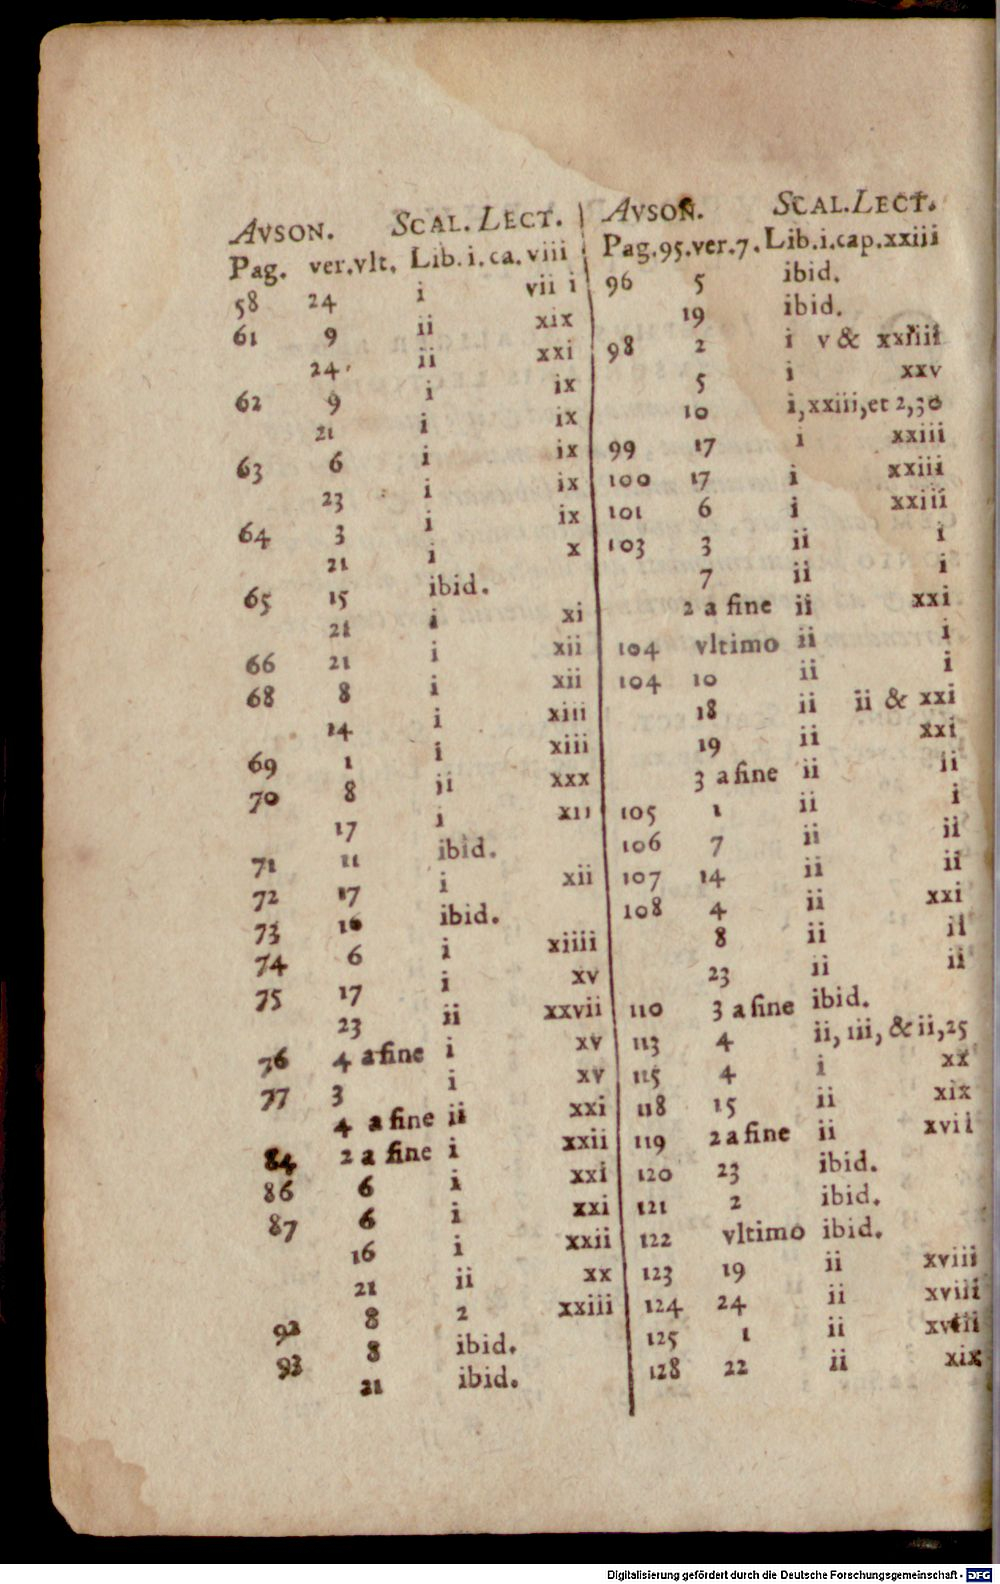 AVSON. SCAL. LECT.
Pag. ver.vlt. Lib. i. ca. viii
58 24 i vii i
61 9 ii xix
24 ii xxi
62 9 i ix
21 i ix
63 6 i ix
23 i ix
64 3 i ix
21 i x
65 15 ibid.
21 i xi
66 21 i xii
68 8 i xii
14 i xiii
69 1 i xiii
70 8 ii xxx
17 i xii
71 11 ibid.
72 17 i xii
73 16 ibid.
74 6 i xiiii
75 17 i xv
23 ii xxvii
76 4 a fine i xv
77 3 i xv
4 a fine ii xxi
84 2 a fine i xxii
86 6 i xxi
87 6 i xxi
16 i xxii
21 ii xx
92 8 2 xxiii
93 8 ibid.
21 ibid.
AVSON. SCAL. LECT.
Pag. 95. ver. 7. Lib. i. cap. xxiii
96 5 ibid.
19 ibid.
98 2 i v & xxiiii
5 i xxv
10 i, xxiii, et 2,30
99 17 i xxiii
100 17 i xxiii
101 6 i xxiii
103 3 ii i
7 ii i
2 a fine ii xxi
104 vltimo ii i
104 10 ii i
18 ii ii & xxi
19 ii xxi
3 a fine ii ii
105 1 ii i
106 7 ii ii
107 14 ii ii
108 4 ii xxi
8 ii ii
23 ii ii
110 3 a fine ibid.
113 4 ii, iii, & ii, 25
115 4 i xx
118 15 ii xix
119 2 a fine ii xvii
120 23 ibid.
121 2 ibid.
122 vltimo ibid.
123 19 ii xviii
124 24 ii xviii
125 1 ii xviii
128 22 ii xix
Digitalisierung gefördert durch die Deutsche Forschungsgemeinschaft - DFG